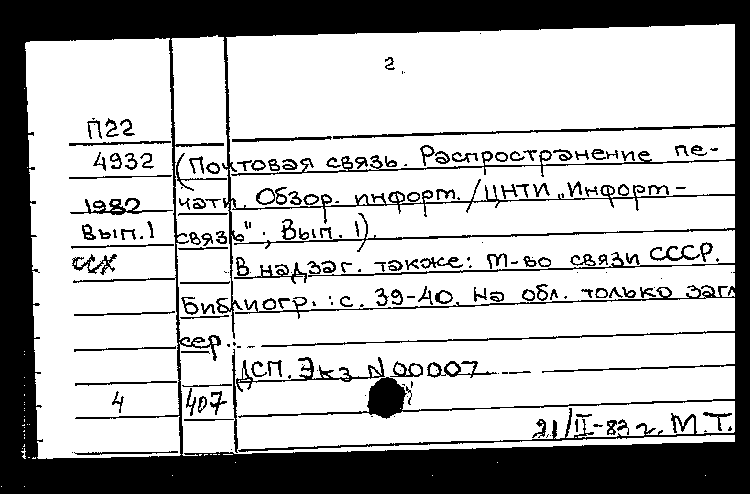 2.
П22
4932 (Почтовая связь. Распространение пе-
1982 чати. Обзор. информ. / ЦНТИ „Информ-
Вып.1 связь"; Вып. 1)
ссх В надзаг. также: М-во связи СССР.
Библиогр.: с. 39-40. На обл. только загл
сер.
ДСП. Экз N 00007
4 407
21/II-83 г. М.Т.